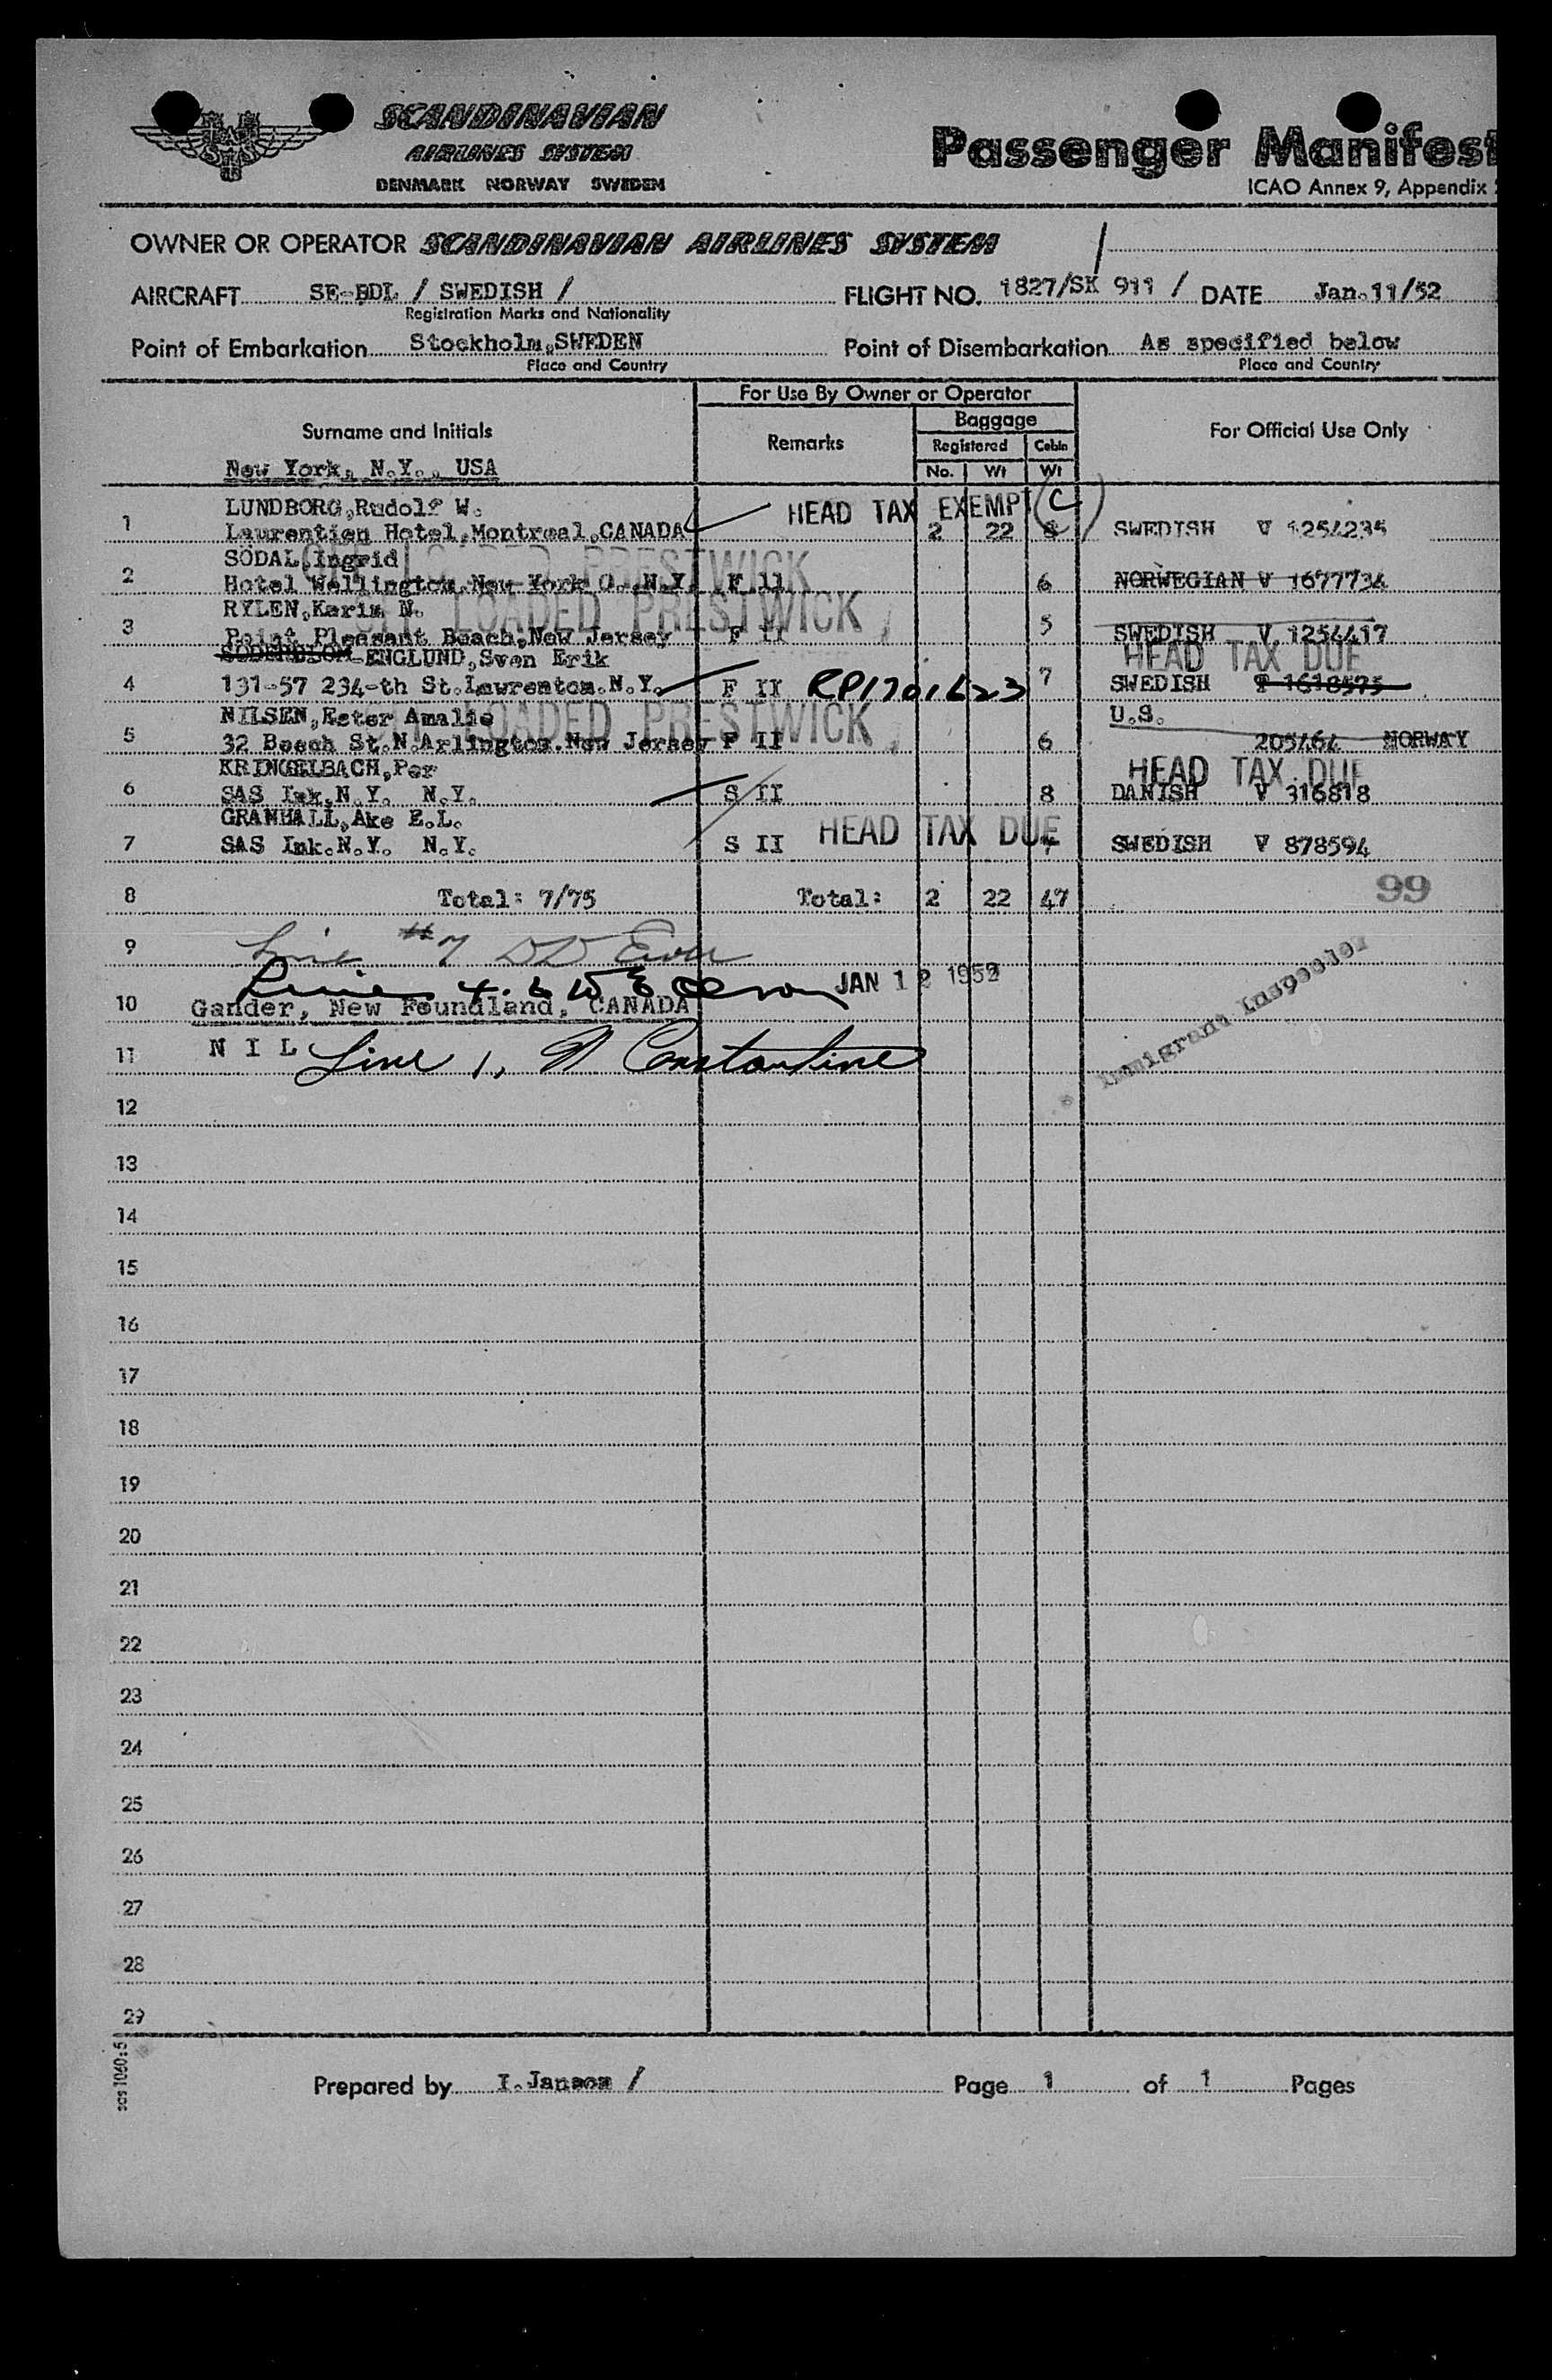 SAS
SCANDINAVIAN
AIRLINES SYSTEM
DENMARK NORWAY SWEDEN
Passenger Manifest
ICAO Annex 9, Appendix
OWNER OR OPERATOR SCANDINAVIAN AIRLINES SYSTEM
AIRCRAFT SE-BDL / SWEDISH / FLIGHT NO. 1827/SK 911 / DATE Jan.11/52
Registration Marks and Nationality
Point of Embarkation Stockholm,SWEDEN Point of Disembarkation As specified below
Place and Country Place and Country
For Use By Owner or Operator
Surname and Initials Remarks Baggage For Official Use Only
Registered Cabin
No. Wt Wt
New York, N.Y., USA
LUNDBORG,Rudolf W. HEAD TAX EXEMPT C
1 Laurentien Hotel,Montreal,CANADA 2 22 SWEDISH V 1254235
SÖDAL,Ingrid LOADED PRESTWICK
2 Hotel Wellington,New York C.,N.Y. F II 6 NORWEGIAN V 1677734
RYLEN,Karin N. LOADED PRESTWICK
3 Point Pleasant Beach,New Jersey F II 5 SWEDISH V 1254417
ENGLUND,Sven Erik HEAD TAX DUE
4 131-57 234-th St.Lawrenton.N.Y. F II RP1701623 7 SWEDISH P 1618575
NILSEN,Ester Amalie LOADED PRESTWICK U.S.
5 32 Beech St.N.Arlington.New Jersey F II 6 205464 NORWAY
KRINGELBACH,Per HEAD TAX DUE
6 SAS Ink.N.Y. N.Y. S II 8 DANISH V 316818
GRANHALL,Ake E.L.
7 SAS Ink.N.Y. N.Y. S II HEAD TAX DUE 7 SWEDISH V 878594
8 Total: 7/75 Total: 2 22 47 99
9 Line #7
10 JAN 12 1952
Gander, New Foundland, CANADA
Immigrant Inspector
11 N I L Line 1, N Constantine
12
13
14
15
16
17
18
19
20
21
22
23
24
25
26
27
28
29
sas 1060:5
Prepared by I.Janson / Page 1 of 1 Pages